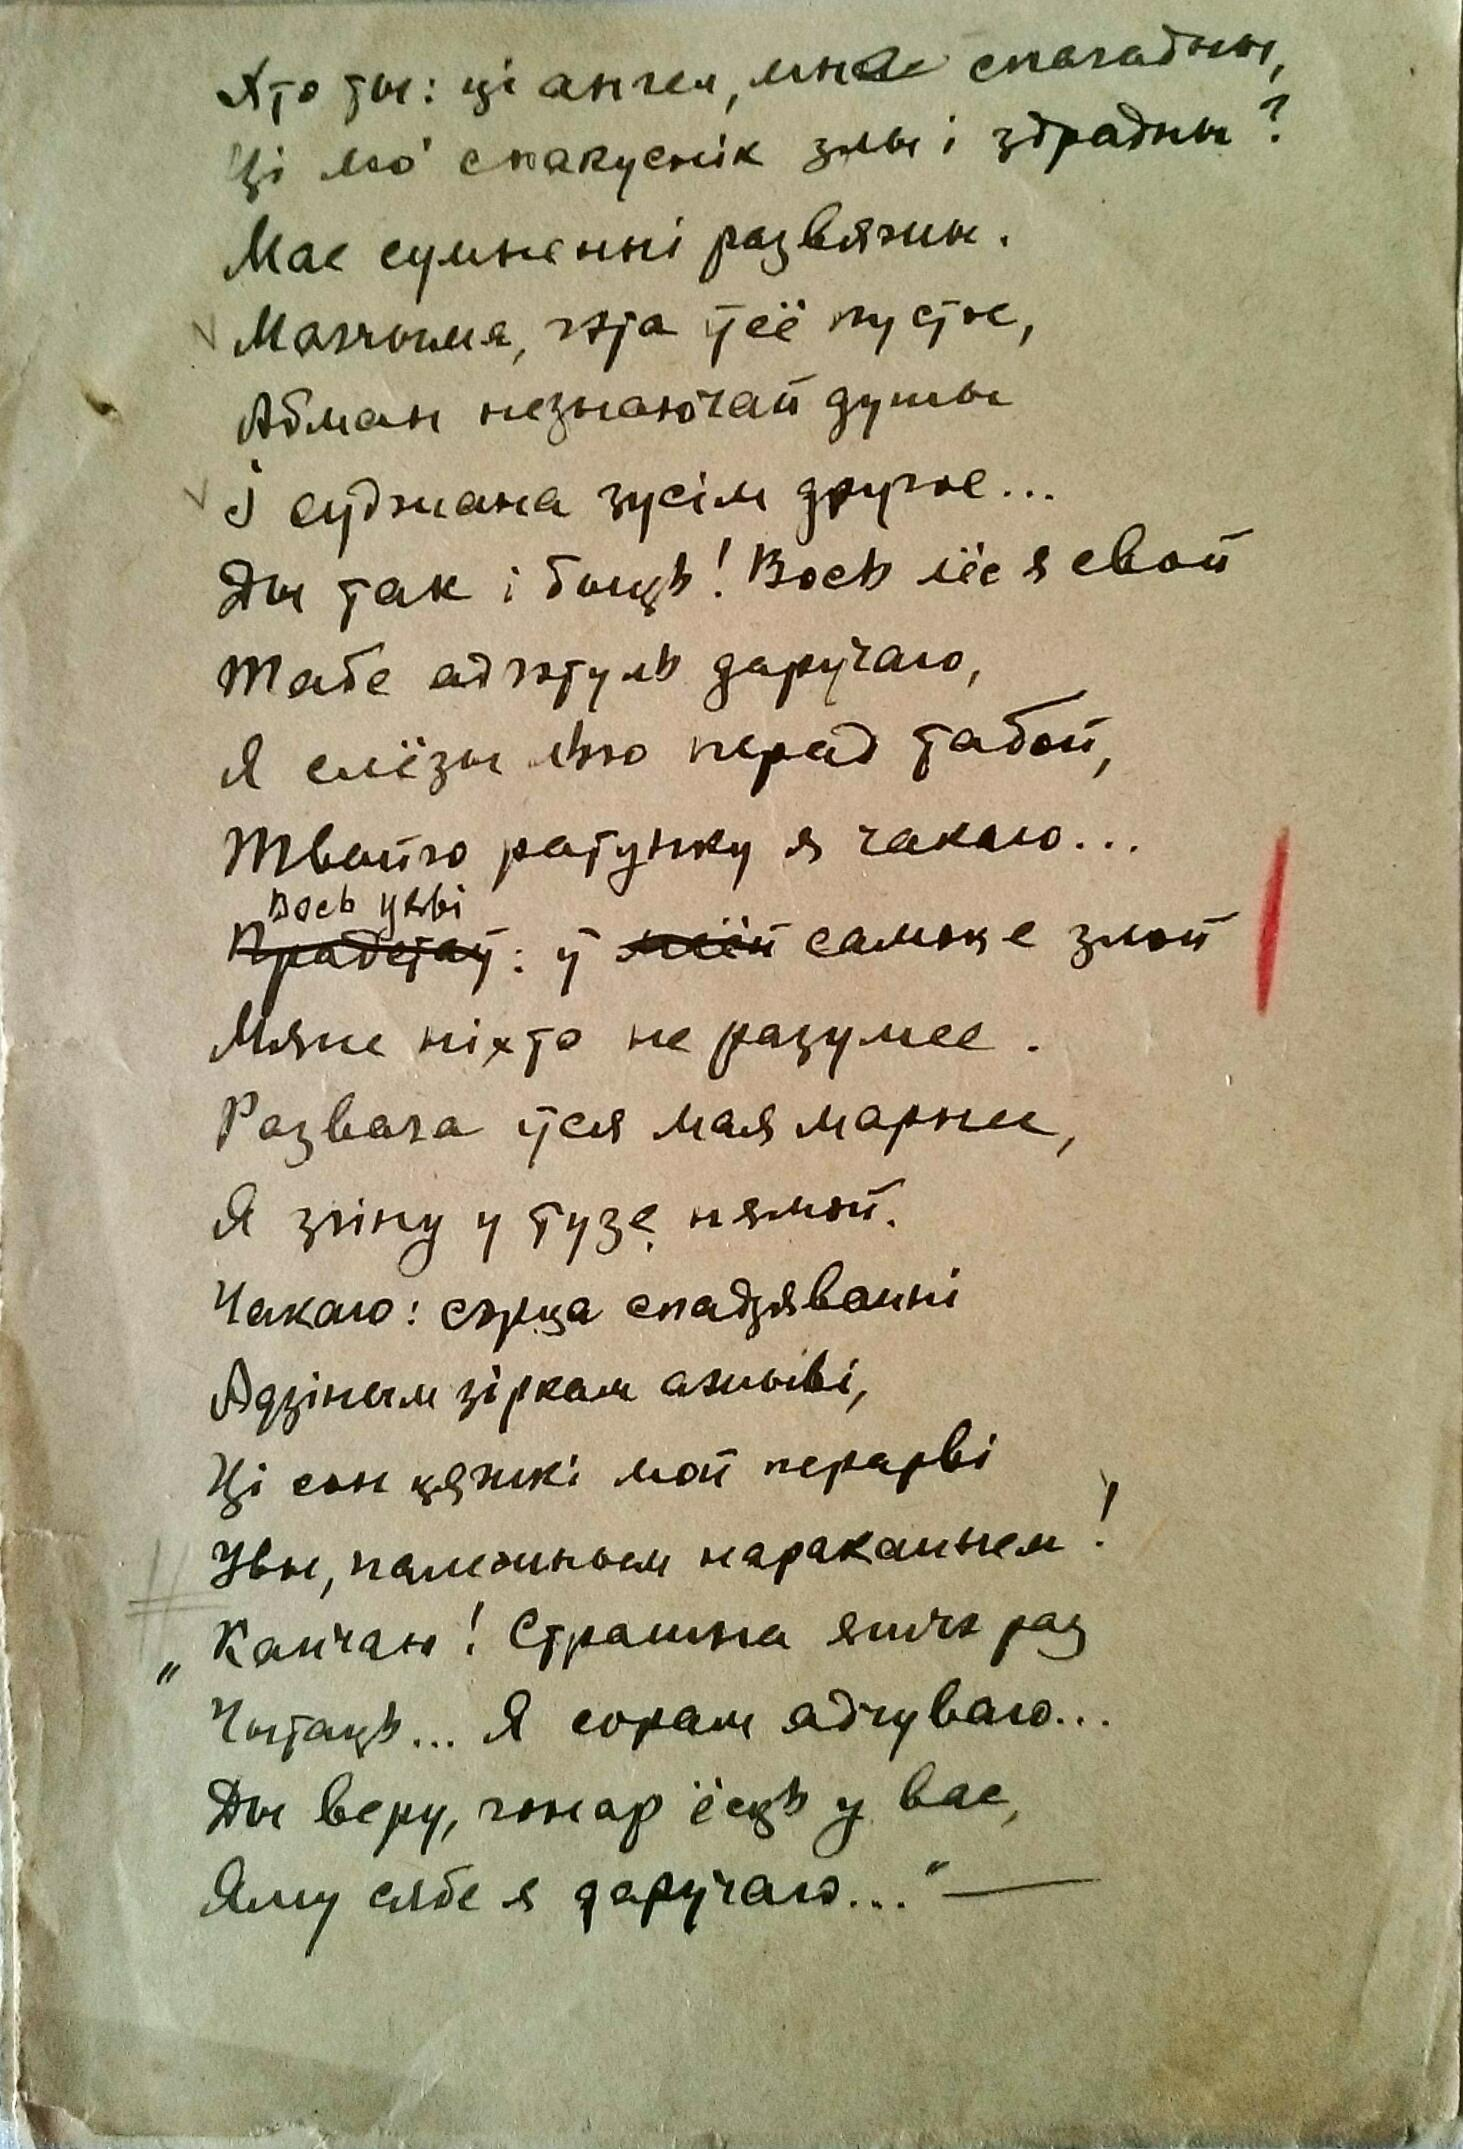 Хто ты: ці ангел, мне спагадны,
Ці мо' спакуснік злы і здрадны?
Мае сумненні развяжы.
Магчыма, гэта ўсё пустое,
Абман незнаючай душы
І суджана зусім другое...
Ды так і быць! Вось лёс я свой
Табе адгэтуль даручаю,
Я слёзы лью перад табой,
Твайго ратунку я чакаю...
Вось уяві
Прадстаў: ў маёй самоце злой
Мяне ніхто не разумее.
Развага ўся мая марнее,
Я згіну у тузе нямой.
Чакаю: сэрца спадзяванні
Адзіным зіркам ажыві,
Ці сон цяжкі мой перарві
Увы, палежным нараканнем!
„Канчаю! Страшна яшчэ раз
Чытаць... Я сорам адчуваю...
Ды веру, гонар ёсць у вас,
Яму сябе я даручаю..." —